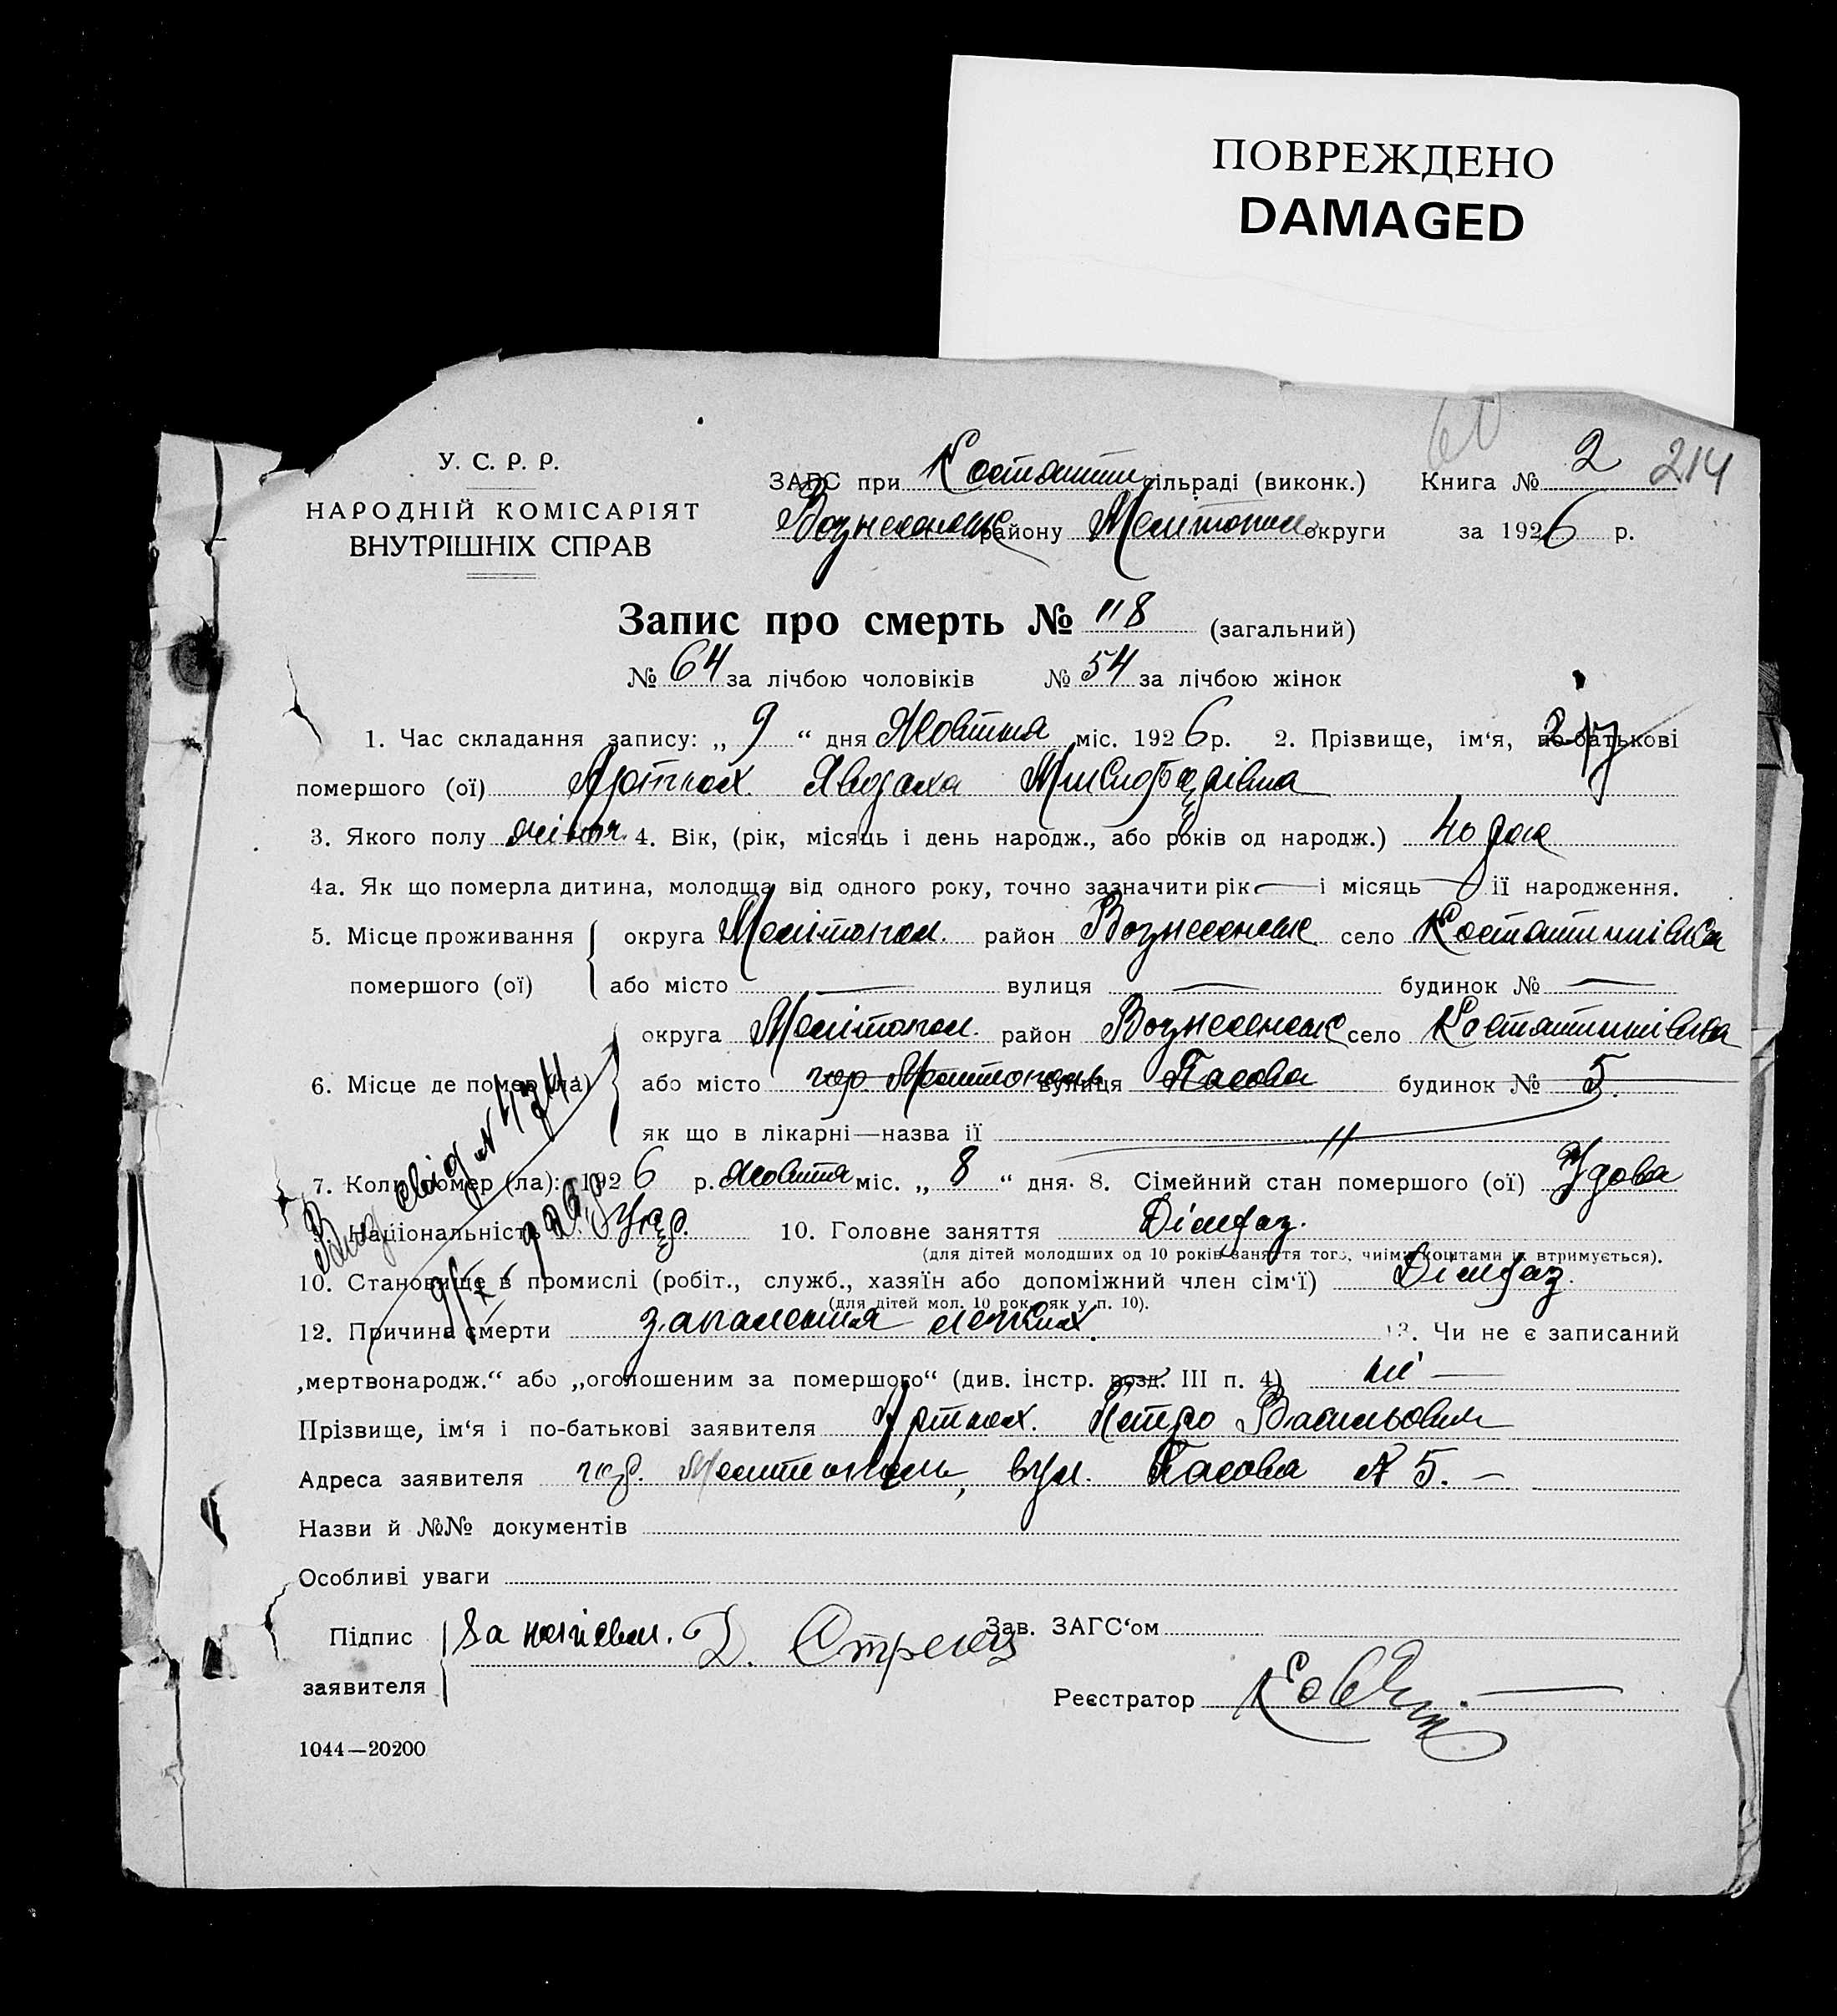 ПОВРЕЖДЕНО
DAMAGED
60
У. С. Р. Р.
НАРОДНІЙ КОМІСАРІЯТ
ВНУТРІШНІХ СПРАВ
ЗАГС при Костянтин сільраді (виконк.) Книга № 2 214
Вознесенськ району Мелитопол. округи за 1926 р.
Запис про смерть № 118 (загальний)
№ 64 за лічбою чоловіків № 54 за лічбою жінок
1. Час складання запису: „ 9 “ дня Жовтня міс. 1926 р. 2. Прізвище, ім‘я, по-батькові 217
помершого (ої)
3. Якого полу жіноч. 4. Вік, (рік, місяць і день народж., або років од народж.) 40 рок
4а. Як що померла дитина, молодща від одного року, точно зазначити рік — і місяць — її народження.
5. Місце проживання округа Мелітопол. район Вознесенськ село Костянтинівка
помершого (ої) або місто — вулиця — будинок № —
округа Мелітопол. район Вознесенськ село Костянтинівка
6. Місце де помер (ла) або місто гор. Мелитополь вулиця будинок № 5.
як що в лікарні—назва її "
7. Коли помер (ла): 1926 р. Жовтня міс. „ 8 “ дня. 8. Сімейний стан помершого (ої) Удова
9. Національність Укр. 10. Головне заняття
(для дітей молодших од 10 років заняття того, чиїми коштами їх втримується).
10. Становище в промислі (робіт., служб., хазяїн або допоміжний член сім‘ї)
(для дітей мол. 10 рок. як у п. 10).
12. Причина смерти запалення легких. 13. Чи не є записаний
„мертвонародж.“ або „оголошеним за помершого“ (див. інстр. розд. III п. 4) ні —
Прізвище, ім‘я і по-батькові заявителя Петро Васильович
Адреса заявителя гор. Мелитополь, вул. № 5. —
Назви й №№ документів
Особливі уваги
Підпис
заявителя
За Д. Стрелец
Зав. ЗАГС‘ом
Реєстратор
1044—20200
Вид. свід. № 434